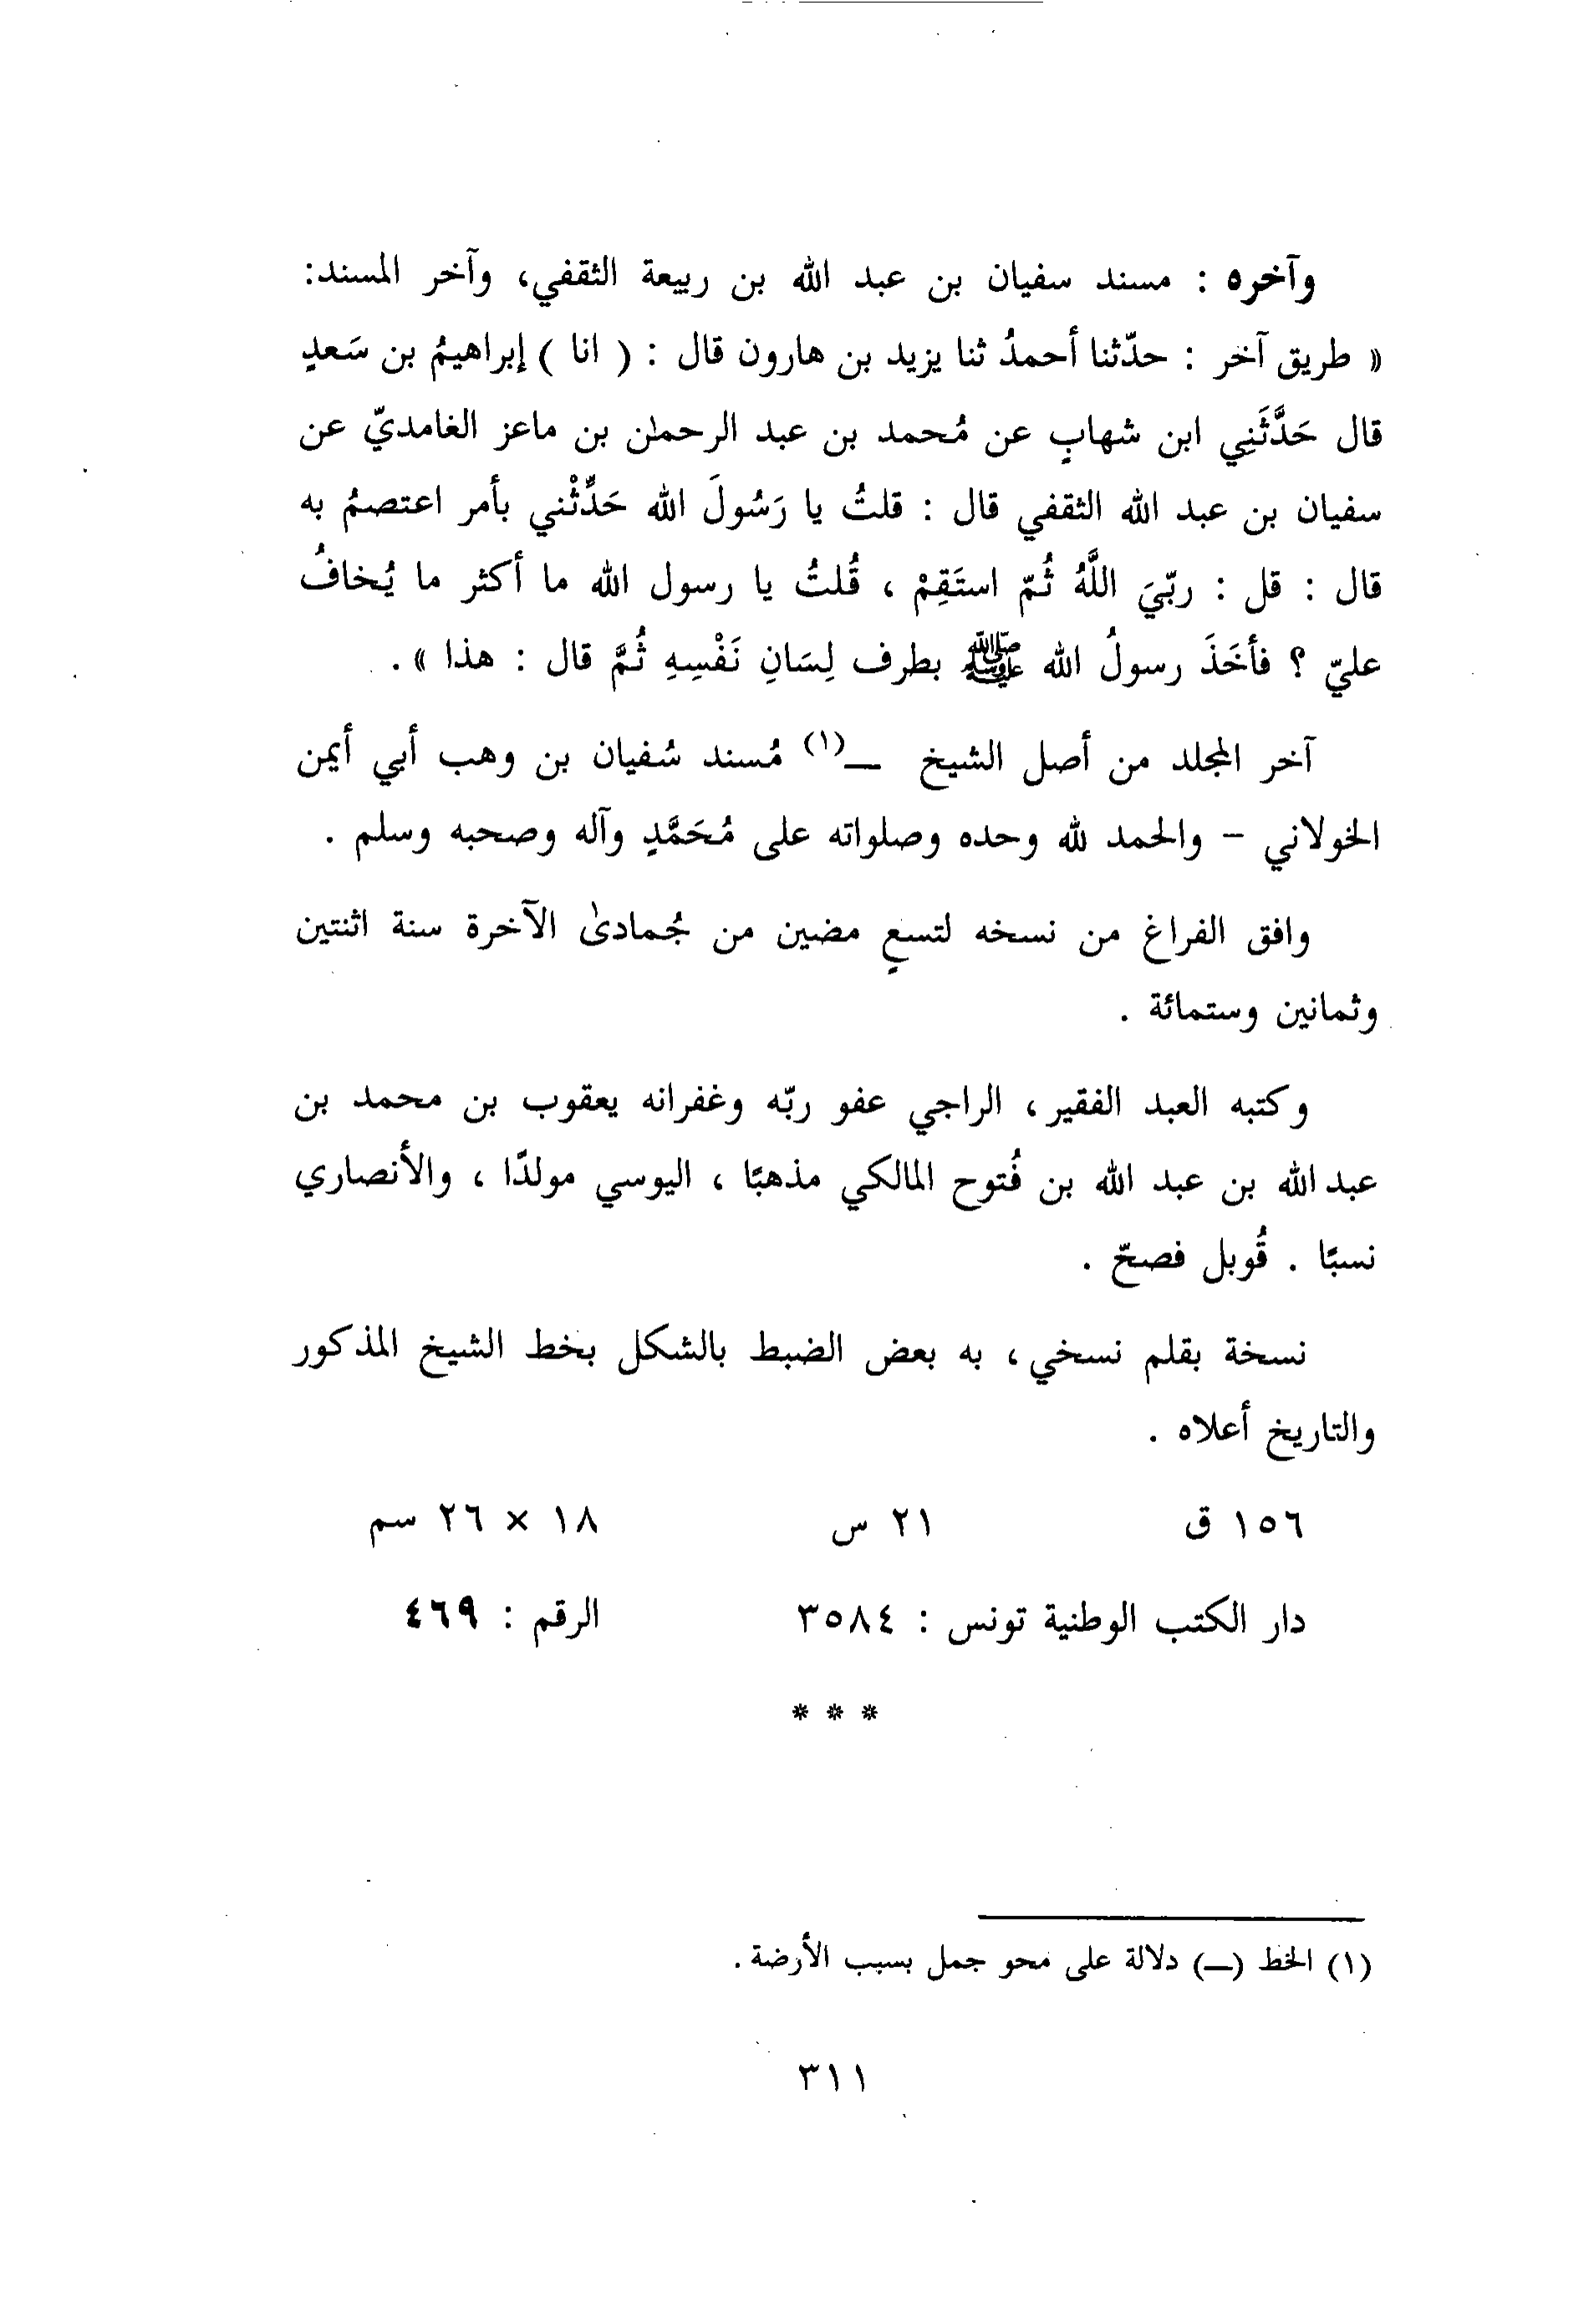 وآخره : مسند سفيان بن عبد الله بن ربيعة الثقفي، وآخر المسند:
« طريق آخر : حدّثنا أحمدُ ثنا يزيد بن هارون قال : ( انا ) إبراهيمُ بن سَعدٍ
قال حَدَّثَنِي ابن شهابٍ عن مُحمد بن عبد الرحمٰن بن ماعز الغامديّ عن
سفيان بن عبد الله الثقفي قال : قلتُ يا رَسُولَ الله حَدِّثْني بأمر اعتصمُ به
قال : قل : ربّيَ اللَّهُ ثُمّ استَقِمْ ، قُلتُ يا رسول الله ما أكثر ما يُخافُ
عليّ ؟ فأخَذَ رسولُ الله ﷺ بطرف لِسَانِ نَفْسِهِ ثُمَّ قال : هذا » .
آخر المجلد من أصل الشيخ ــ(١) مُسند سُفيان بن وهب أبي أيمن
الخولاني – والحمد لله وحده وصلواته على مُحَمَّدٍ وآله وصحبه وسلم .
وافق الفراغ من نسخه لتسعٍ مضين من جُمادىٰ الآخرة سنة اثنتين
وثمانين وستمائة .
وكتبه العبد الفقير، الراجي عفو ربّه وغفرانه يعقوب بن محمد بن
عبد الله بن عبد الله بن فُتوح المالكي مذهبًا ، اليوسي مولدًا ، والأنصاري
نسبًا . قُوبل فصحّ .
نسخة بقلم نسخي، به بعض الضبط بالشكل بخط الشيخ المذكور
والتاريخ أعلاه .
١٥٦ ق ٢١ س ١٨ × ٢٦ سم
دار الكتب الوطنية تونس : ٣٥٨٤ الرقم : ٤٦٩
* * *
(١) الخط (ــ) دلالة على محو جمل بسبب الأرضة .
٣١١